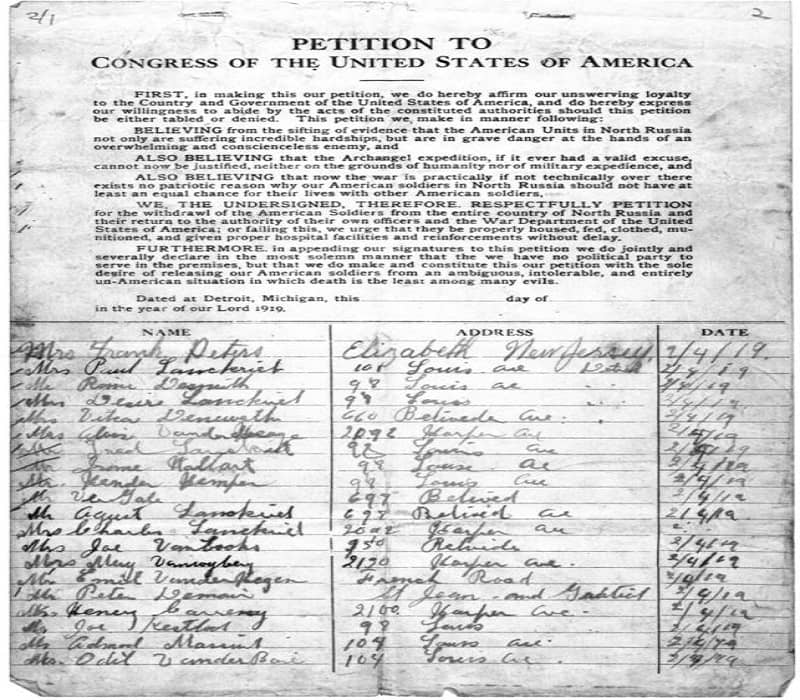 2/1
2
PETITION TO
CONGRESS OF THE UNITED STATES OF AMERICA
FIRST, in making this our petition, we do hereby affirm our unswerving loyalty
to the Country and Government of the United States of America, and do hereby express
our willingness to abide by the acts of the constituted authorities should this petition
be either tabled or denied. This petition we make in manner following:
BELIEVING from the sifting of evidence that the American Units in North Russia
not only are suffering incredible hardships, but are in grave danger at the hands of an
overwhelming and conscienceless enemy, and
ALSO BELIEVING that the Archangel expedition, if it ever had a valid excuse,
cannot now be justified, neither on the grounds of humanity nor of military expedience, and
ALSO BELIEVING that now the war is practically if not technically over there
exists no patriotic reason why our American soldiers in North Russia should not have at
least an equal chance for their lives with other American soldiers,
WE, THE UNDERSIGNED, THEREFORE, RESPECTFULLY PETITION
for the withdrawl of the American Soldiers from the entire country of North Russia and
their return to the authority of their own officers and the War Department of the United
States of America; or failing this, we urge that they be properly housed, fed, clothed, mu-
nitioned, and given proper hospital facilities and reinforcements without delay.
FURTHERMORE, in appending our signatures to this petition we do jointly and
severally declare in the most solemn manner that the we have no political party to
serve in the premises, but that we do make and constitute this our petition with the sole
desire of releasing our American soldiers from an ambiguous, intolerable, and entirely
un-American situation in which death is the least among many evils.
Dated at Detroit, Michigan, this day of
in the year of our Lord 1919.
NAME ADDRESS DATE
Mrs Frank Peters Elizabeth New Jersey. 2/4/19.
Mrs Paul Lanckriet 108 Louis ave 2/4/19
Mr Remi 98 Louis ave 2/4/19
Mrs Desire Lanckriet 98 Louis 2/4/19
Mrs 660 Belvieder Ave. 2/4/19
Mrs 2092 Harper Ave 2/4/19
98 Louis ave 2/4/19
Mr Jrome Hallart 98 Louse Ae 2/4/19
Mr. Kender Kemper 98 Louis Ave 2/4/19
Mr Ver Gale 697 Belived 2/4/19
Mr August Lanckriet 697 Belived ave 2/4/19
Mrs Charles Lanckriet 2092 Harper ave
Mrs Joe 950 Belvide 2/4/19
Mrs Mary 2120 Harper ave. 2/4/19
Mr Emiel VanderHegen French Road 2/4/19
Mr Peter St Jean and Gratiot 2/4/19
Mrs Henery Carreney 2100 Harper Ave. 2/4/19
Mr Joe 98 Louis 2/4/19
Mr 104 Louis ave 2/4/19
Mr. Odil 104 Louis Ave 2/4/19